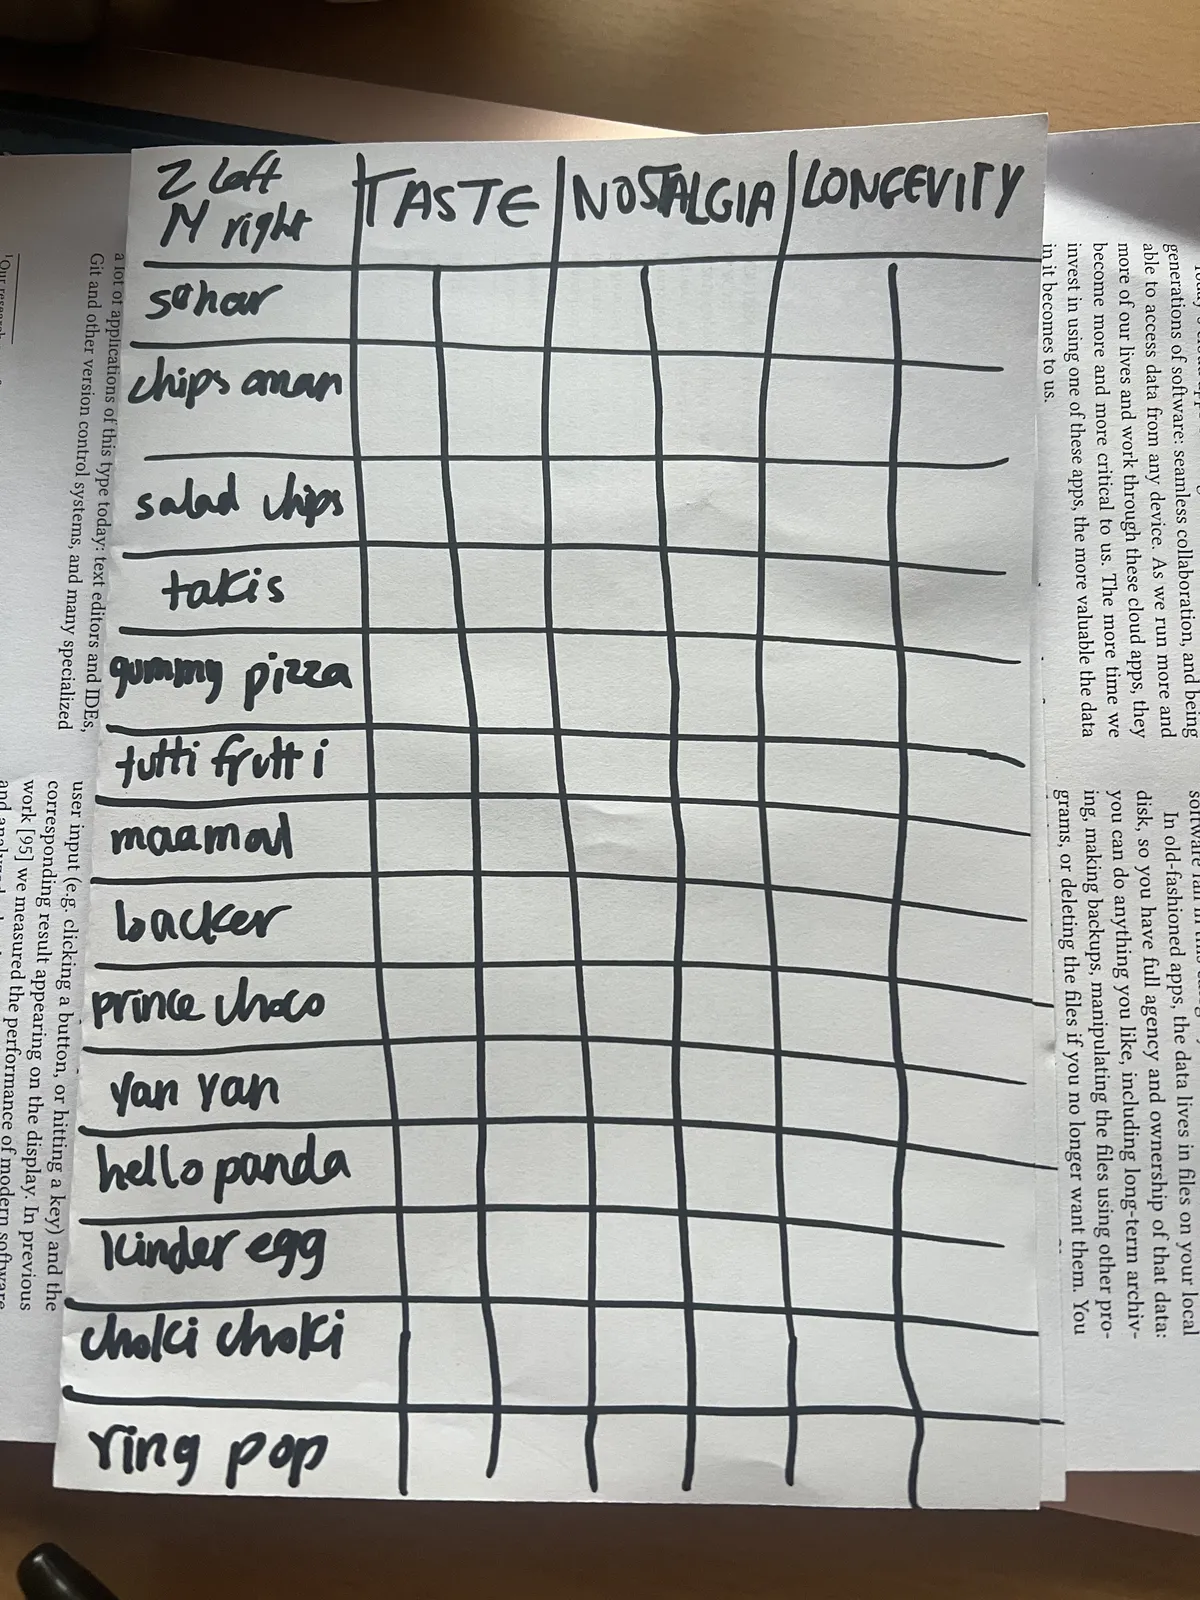 Z left
N right
TASTE
NOSTALGIA
LONGEVITY
sohar
chips oman
salad chips
takis
gummy pizza
tutti frutti
maamoul
backer
prince choco
yan yan
hello panda
kinder egg
choki choki
ring pop
a lot of applications of this type today: text editors and IDEs,
Git and other version control systems, and many specialized
user input (e.g. clicking a button, or hitting a key) and the
corresponding result appearing on the display. In previous
work [95] we measured the performance of modern software
generations of software: seamless collaboration, and being
able to access data from any device. As we run more and
more of our lives and work through these cloud apps, they
become more and more critical to us. The more time we
invest in using one of these apps, the more valuable the data
in it becomes to us.
In old-fashioned apps, the data lives in files on your local
disk, so you have full agency and ownership of that data:
you can do anything you like, including long-term archiv-
ing, making backups, manipulating the files using other pro-
grams, or deleting the files if you no longer want them. You